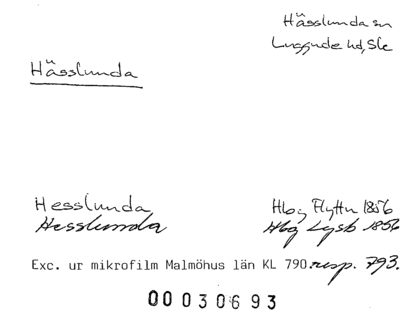 Hässlunda sn
Luggude hd, Ske
Hässlunda
Hesslunda Hbg Flyttn 1856
Hesslunda Hbg Lysb 1856
Exc. ur mikrofilm Malmöhus län KL 790. resp. 793.
00 030693